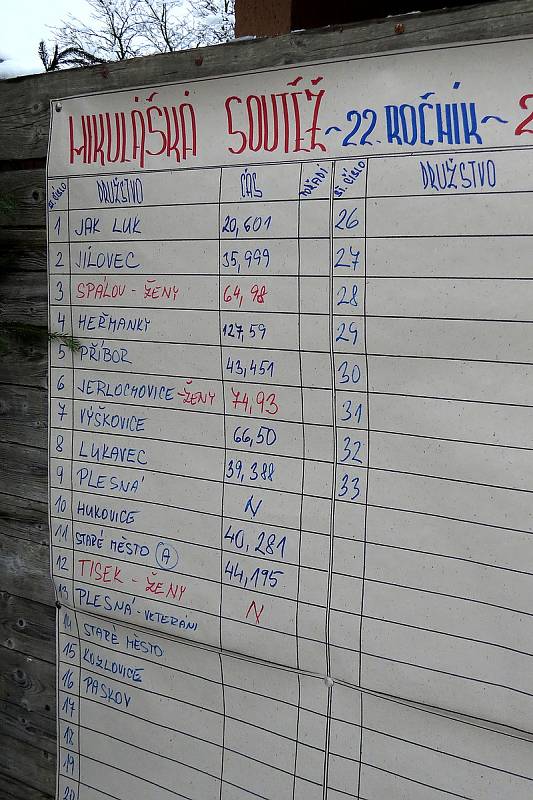 MIKULÁŠKÁ SOUTĚŽ ~ 22. ROČNÍK ~ 2
ST. ČÍSLO DRUŽSTVO ČAS POŘADÍ ST. ČÍSLO DRUŽSTVO
1 JAK LUK 20,601 26
2 JÍLOVEC 35,999 27
3 SPÁLOV - ŽENY 64,98 28
4 HEŘMANKY 127,59 29
5 PŘÍBOR 43,451 30
6 JERLOCHOVICE - ŽENY 74,93 31
7 VÝŠKOVICE 66,50 32
8 LUKAVEC 39,388 33
9 PLESNÁ N
10 HUKOVICE 40,281
11 STARÉ MĚSTO A 44,195
12 TISEK - ŽENY N
13 PLESNÁ - VETERÁNI
14 STARÉ MĚSTO
15 KOZLOVICE
16 PASKOV
17
18
19
20